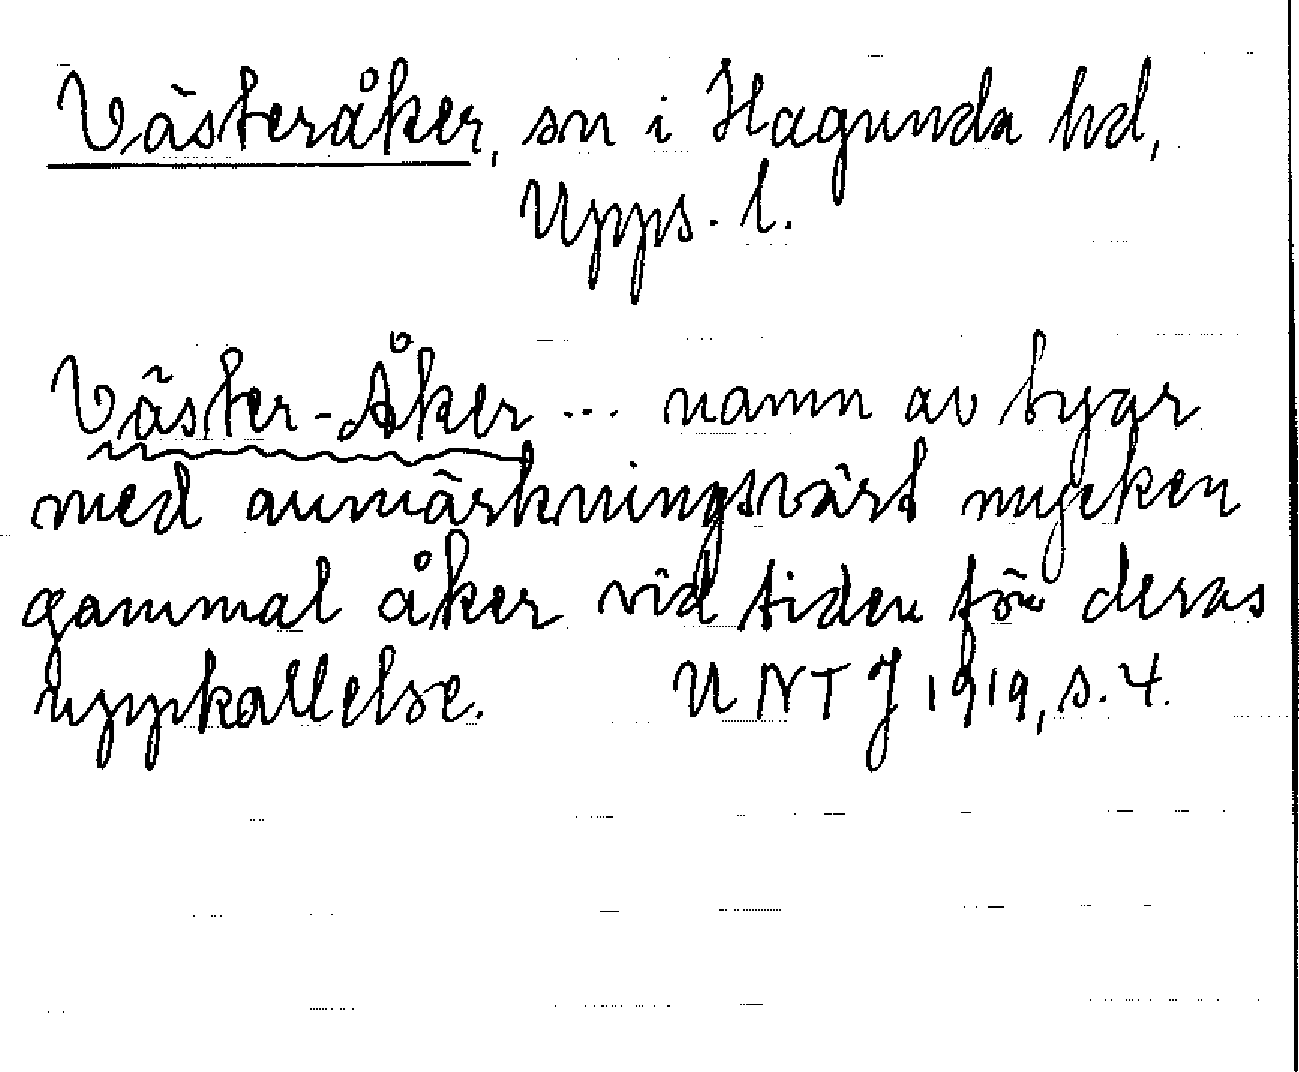 Västeråker, sn i Hagunda hd,
Upps. l.
Väster-Åker ... namn av bygr
med anmärkningsvärt mycken
gammal åker vid tiden för deras
uppkallelse. UNTJ 1919, s. 4.